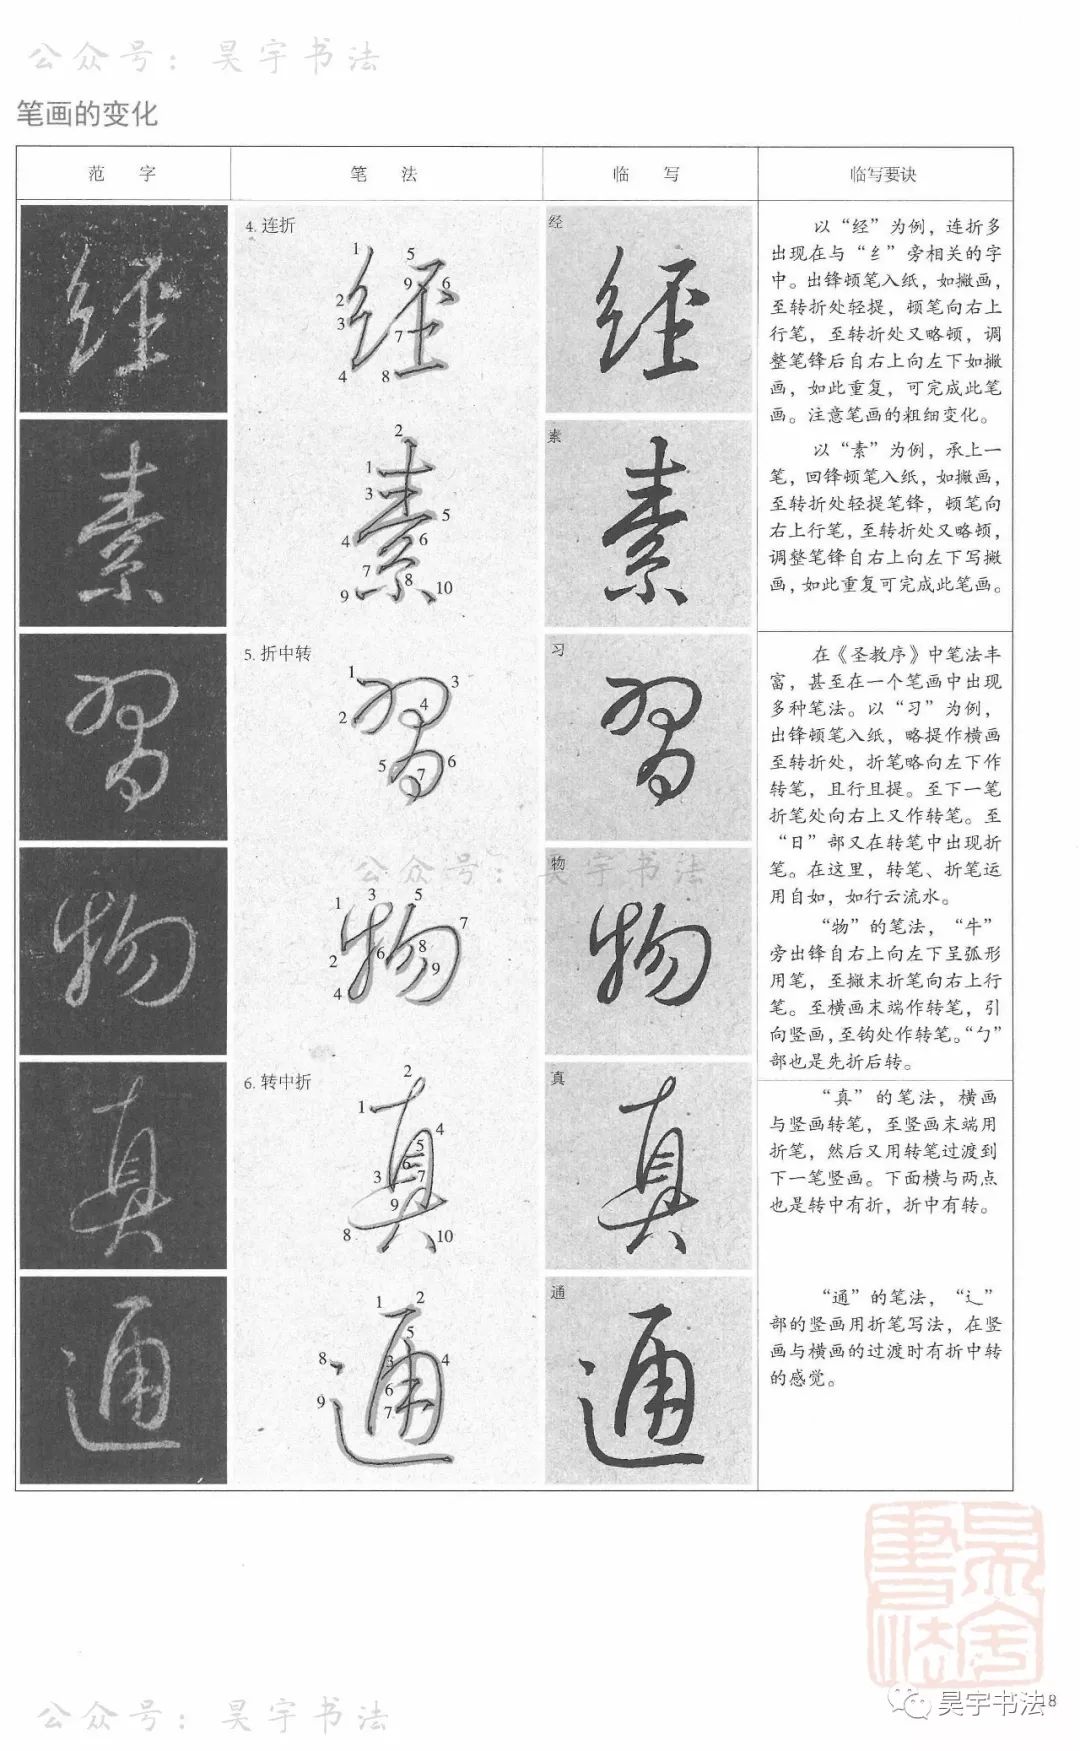 公众号：昊宇书法
笔画的变化
范 字
笔 法
临 写
临写要诀
4. 连折
1
2
3
4
5
6
7
8
9
经
以“经”为例，连折多
出现在与“纟”旁相关的字
中。出锋顿笔入纸，如撇画，
至转折处轻提，顿笔向右上
行笔，至转折处又略顿，调
整笔锋后自右上向左下如撇
画，如此重复，可完成此笔
画。注意笔画的粗细变化。
1
2
3
4
5
6
7
8
9
10
素
以“素”为例，承上一
笔，回锋顿笔入纸，如撇画，
至转折处轻提笔锋，顿笔向
右上行笔，至转折处又略顿，
调整笔锋自右上向左下写撇
画，如此重复可完成此笔画。
5. 折中转
1
2
3
4
5
6
7
习
在《圣教序》中笔法丰
富，甚至在一个笔画中出现
多种笔法。以“习”为例，
出锋顿笔入纸，略提作横画
至转折处，折笔略向左下作
转笔，且行且提。至下一笔
折笔处向右上又作转笔。至
“日”部又在转笔中出现折
笔。在这里，转笔、折笔运
用自如，如行云流水。
公众号：昊宇书法
1
2
3
4
5
6
7
8
9
物
“物”的笔法，“牛”
旁出锋自右上向左下呈弧形
用笔，至撇末折笔向右上行
笔。至横画末端作转笔，引
向竖画，至钩处作转笔。“勹”
部也是先折后转。
6. 转中折
1
2
3
4
5
6
7
8
9
10
真
“真”的笔法，横画
与竖画转笔，至竖画末端用
折笔，然后又用转笔过渡到
下一笔竖画。下面横与两点
也是转中有折，折中有转。
1
2
3
4
5
6
7
8
9
通
“通”的笔法，“辶”
部的竖画用折笔写法，在竖
画与横画的过渡时有折中转
的感觉。
昊宇書法
昊宇书法
18
公众号：昊宇书法